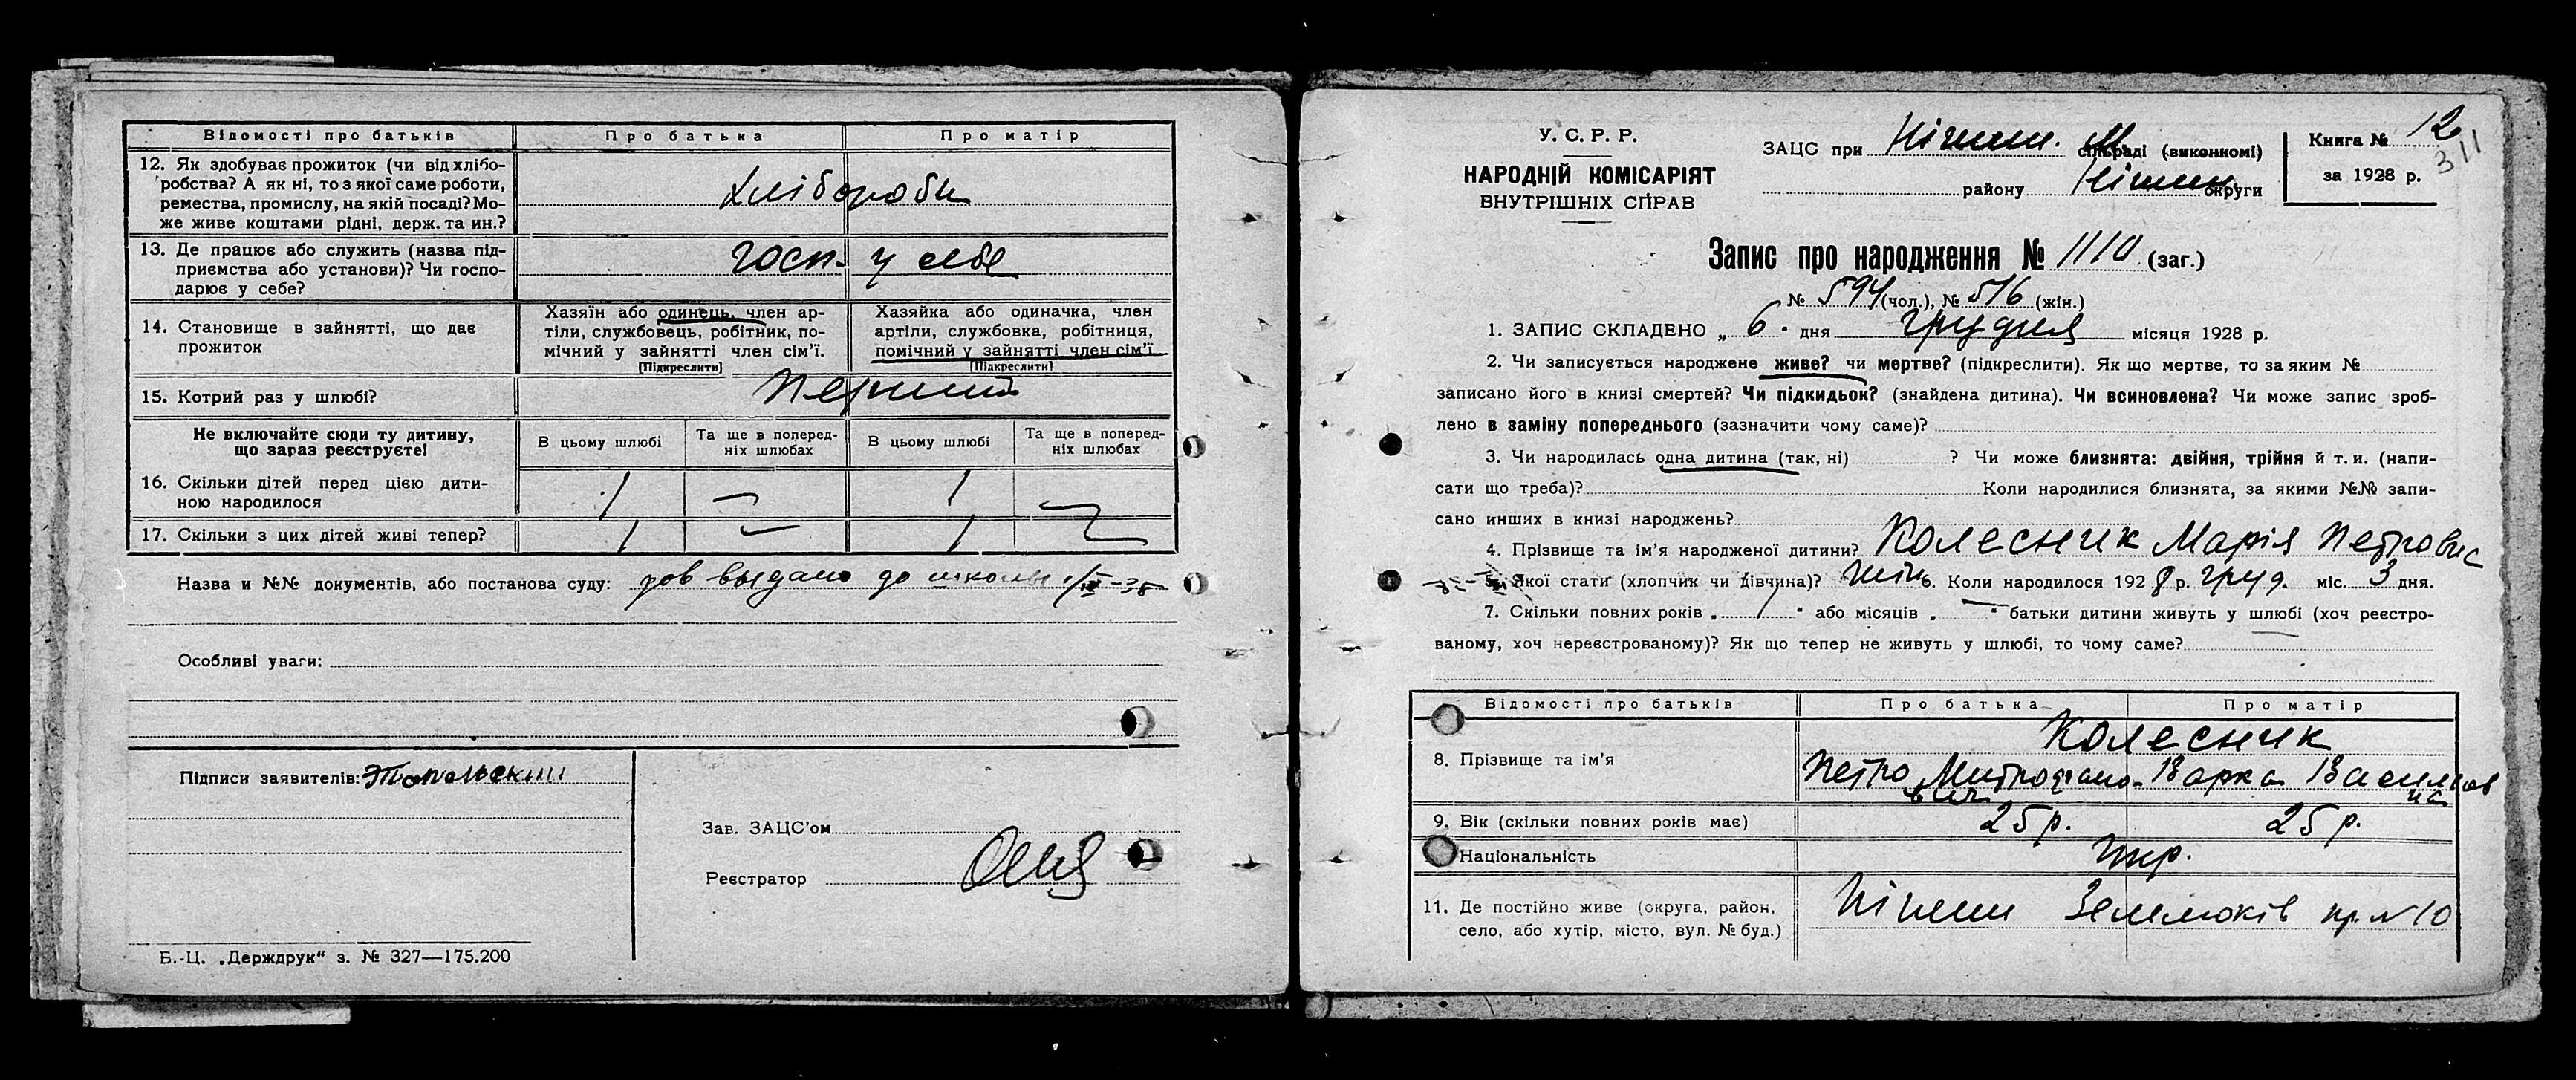 Відомості про батьків Про батька Про матір
12. Як здобуває прожиток (чи від хлібо-
робства? А як ні, то з якої саме роботи,
ремества, промислу, на якій посаді? Мо-
же живе коштами рідні, держ. та ин.?
хлібороби
13. Де працює або служить (назва під-
приємства або установи)? Чи госпо-
дарює у себе?
госп. у себе
14. Становище в зайнятті, що дає
прожиток
Хазяїн або одинець, член ар-
тіли, службовець, робітник, по-
мічний у зайнятті член сім'ї.
[Підкреслити]
Хазяйка або одиначка, член
артіли, службовка, робітниця,
помічний у зайнятті член сім'ї
[Підкреслити]
15. Котрий раз у шлюбі?
перший
Не включайте сюди ту дитину,
що зараз реєструєте!
В цьому шлюбі
Та ще в поперед-
ніх шлюбах
В цьому шлюбі
Та ще в поперед-
ніх шлюбах
16. Скільки дітей перед цією дити-
ною народилося
1 — 1 —
17. Скільки з цих дітей живі тепер?
1 — 1 —
Назва и №№ документів, або постанова суду: выдано до школы
Особливі уваги:
Підписи заявителів:
Зав. ЗАЦС'ом
Реєстратор
Б.-Ц. „Держдрук" з. № 327—175.200
У. С. Р. Р.
НАРОДНІЙ КОМІСАРІЯТ
ВНУТРІШНІХ СПРАВ
ЗАЦС при Ніжин. М. сільраді (виконкомі)
району Ніжин. округи
Книга № 12
311
за 1928 р.
Запис про народження № 1110 (заг.)
№ 594 (чол.), № 516 (жін.)
1. ЗАПИС СКЛАДЕНО „ 6 " дня грудня місяця 1928 р.
2. Чи записується народжене живе? чи мертве? (підкреслити). Як що мертве, то за яким №
записано його в книзі смертей? Чи підкидьок? (знайдена дитина). Чи всиновлена? Чи може запис зроб-
лено в заміну попереднього (зазначити чому саме)?
3. Чи народилась одна дитина (так, ні) ? Чи може близнята: двійня, трійня й т. и. (напи-
сати що треба)? Коли народилися близнята, за якими №№ запи-
сано инших в книзі народжень?
4. Прізвище та ім'я народженої дитини? Колесник Марія Петровна
5. Якої стати (хлопчик чи дівчина)? жін 6. Коли народилося 1928 р. груд. міс. 3 дня.
7. Скільки повних років „ 7 " або місяців „ — " батьки дитини живуть у шлюбі (хоч реєстро-
ваному, хоч нереєстрованому)? Як що тепер не живуть у шлюбі, то чому саме?
Відомості про батьків Про батька Про матір
8. Прізвище та ім'я
Колесник
Петро Митрофано-
вич
Варка Васильов
на
9. Вік (скільки повних років має) 25 р. 25 р.
Національність укр.
11. Де постійно живе (округа, район,
село, або хутір, місто, вул. № буд.)
Ніжин пр. № 10